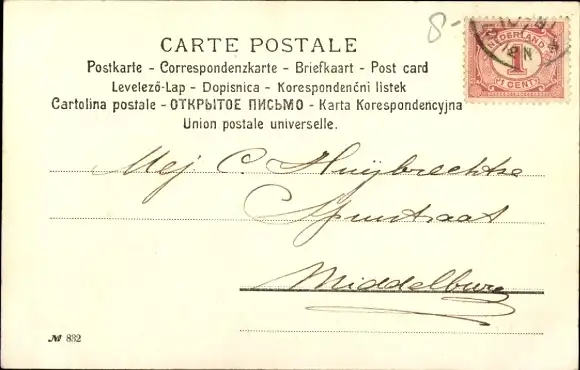 8-
NEDERLAND
1
1 CENT
CARTE POSTALE
Postkarte - Correspondenzkarte - Briefkaart - Post card
Levelező-Lap - Dopisnica - Korespondenční listek
Cartolina postale - ОТКРЫТОЕ ПИСЬМО - Karta Korespondencyjna
Union postale universelle.
Mej C. Huijbrechtse
Spuistraat
Middelburg
№ 832